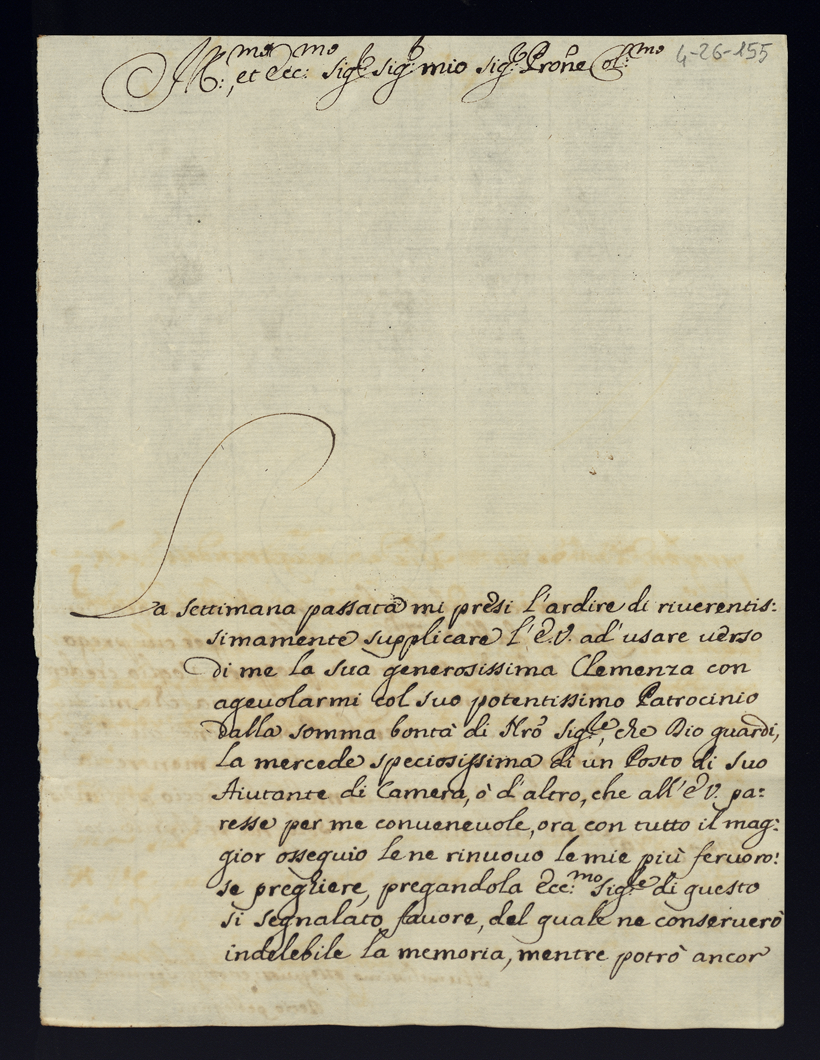 Ill:mo et Ecc:mo Sig:r Sig:r mio Sig:r Prone Col:mo 4-26-155
La settimana passata mi presi l'ardire di riverentis:
simamente supplicare l'E.V. ad'usare verso
di me la sua generosissima Clemenza con
agevolarmi col suo potentissimo Patrocinio
dalla somma bontà di Nrō Sig:le, che Dio guardi,
la mercede speciosissima di un Posto di suo
Aiutante di Camera, ò d'altro, che all'E.V. pa:
resse per me convenevole, ora con tutto il mag:
gior ossequio le ne rinuovo le mie più fervoro:
se preghiere, pregandola Ecc:mo Sig:le di questo
sì segnalato favore, del quale ne conserverò
indelebile la memoria, mentre potrò ancor